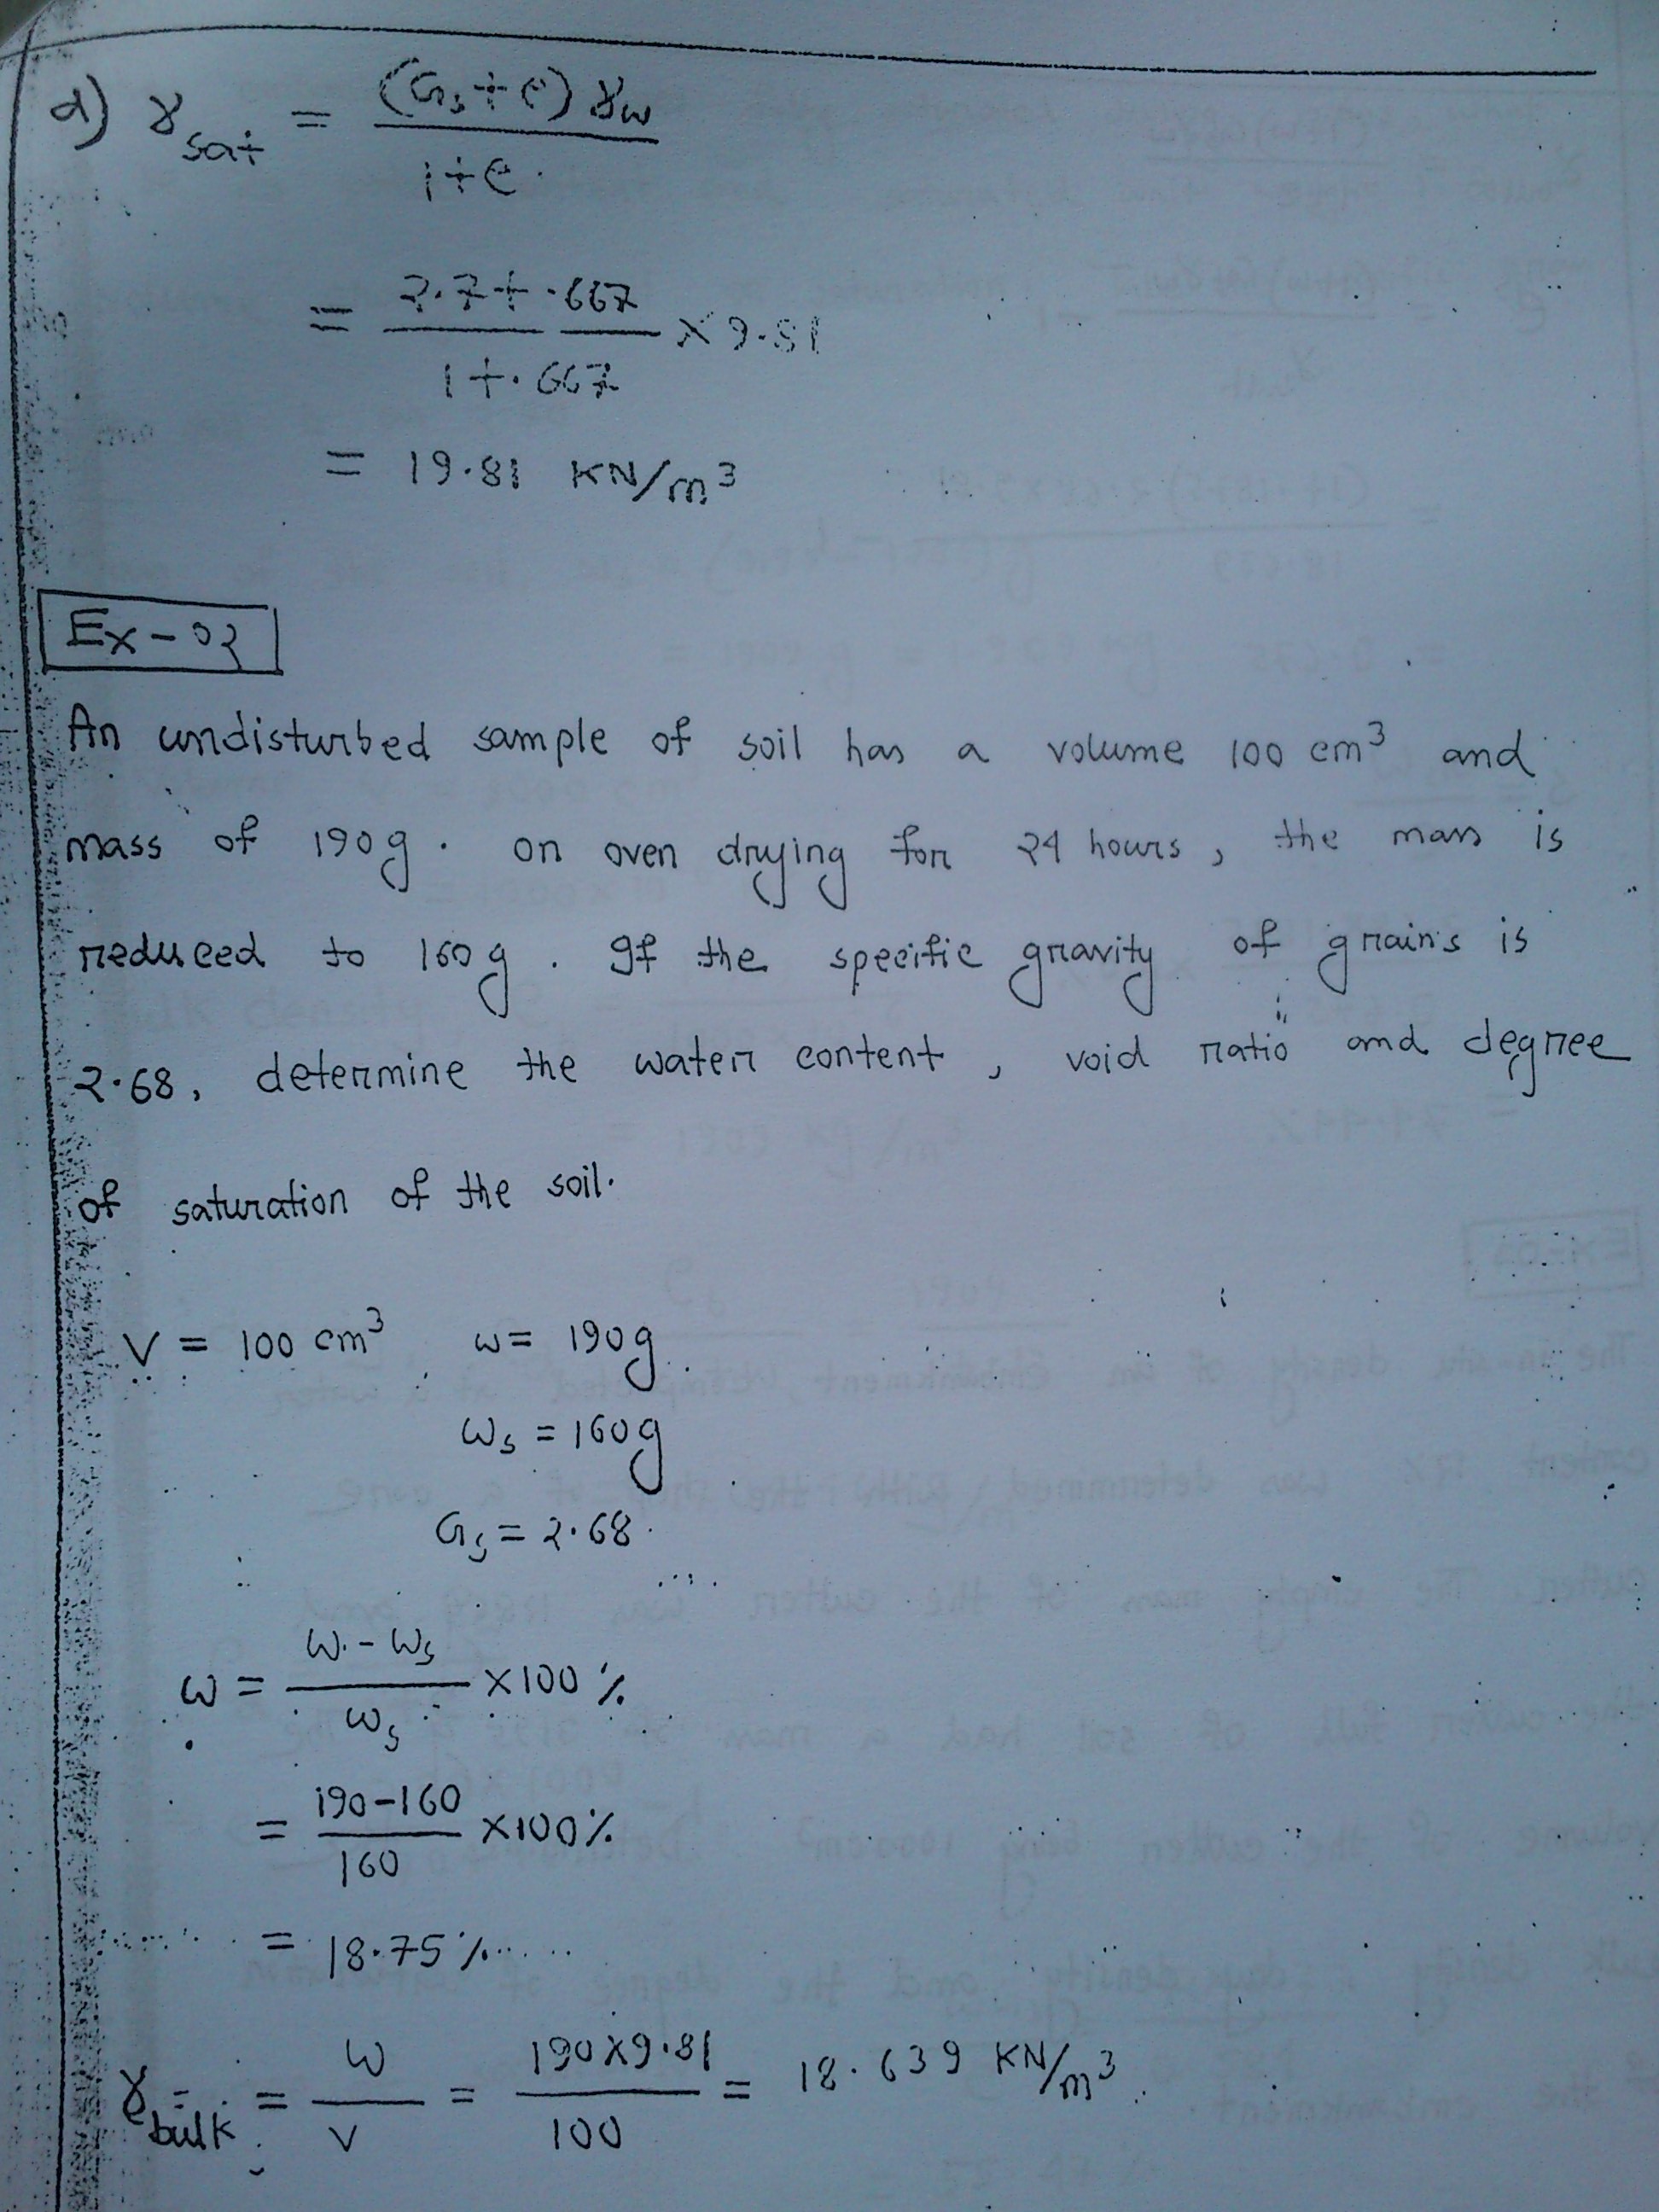 d) γsat = (Gs+e) γw / 1+e
= 2.7+.667 / 1+.667 ×9.81
= 19.81 KN/m³
Ex-03
An undisturbed sample of soil has a volume 100 cm³ and
mass of 190g. on oven drying for 24 hours, the mass is
reduced to 160g. If the specific gravity of grains is
2.68, determine the water content, void ratio and degree
of saturation of the soil.
V = 100 cm³ w = 190g
ws = 160g
Gs = 2.68
ω = w-ws / ws ×100%
= 190-160 / 160 ×100%
= 18.75%
γbulk = w / v = 190×9.81 / 100 = 18.639 KN/m³